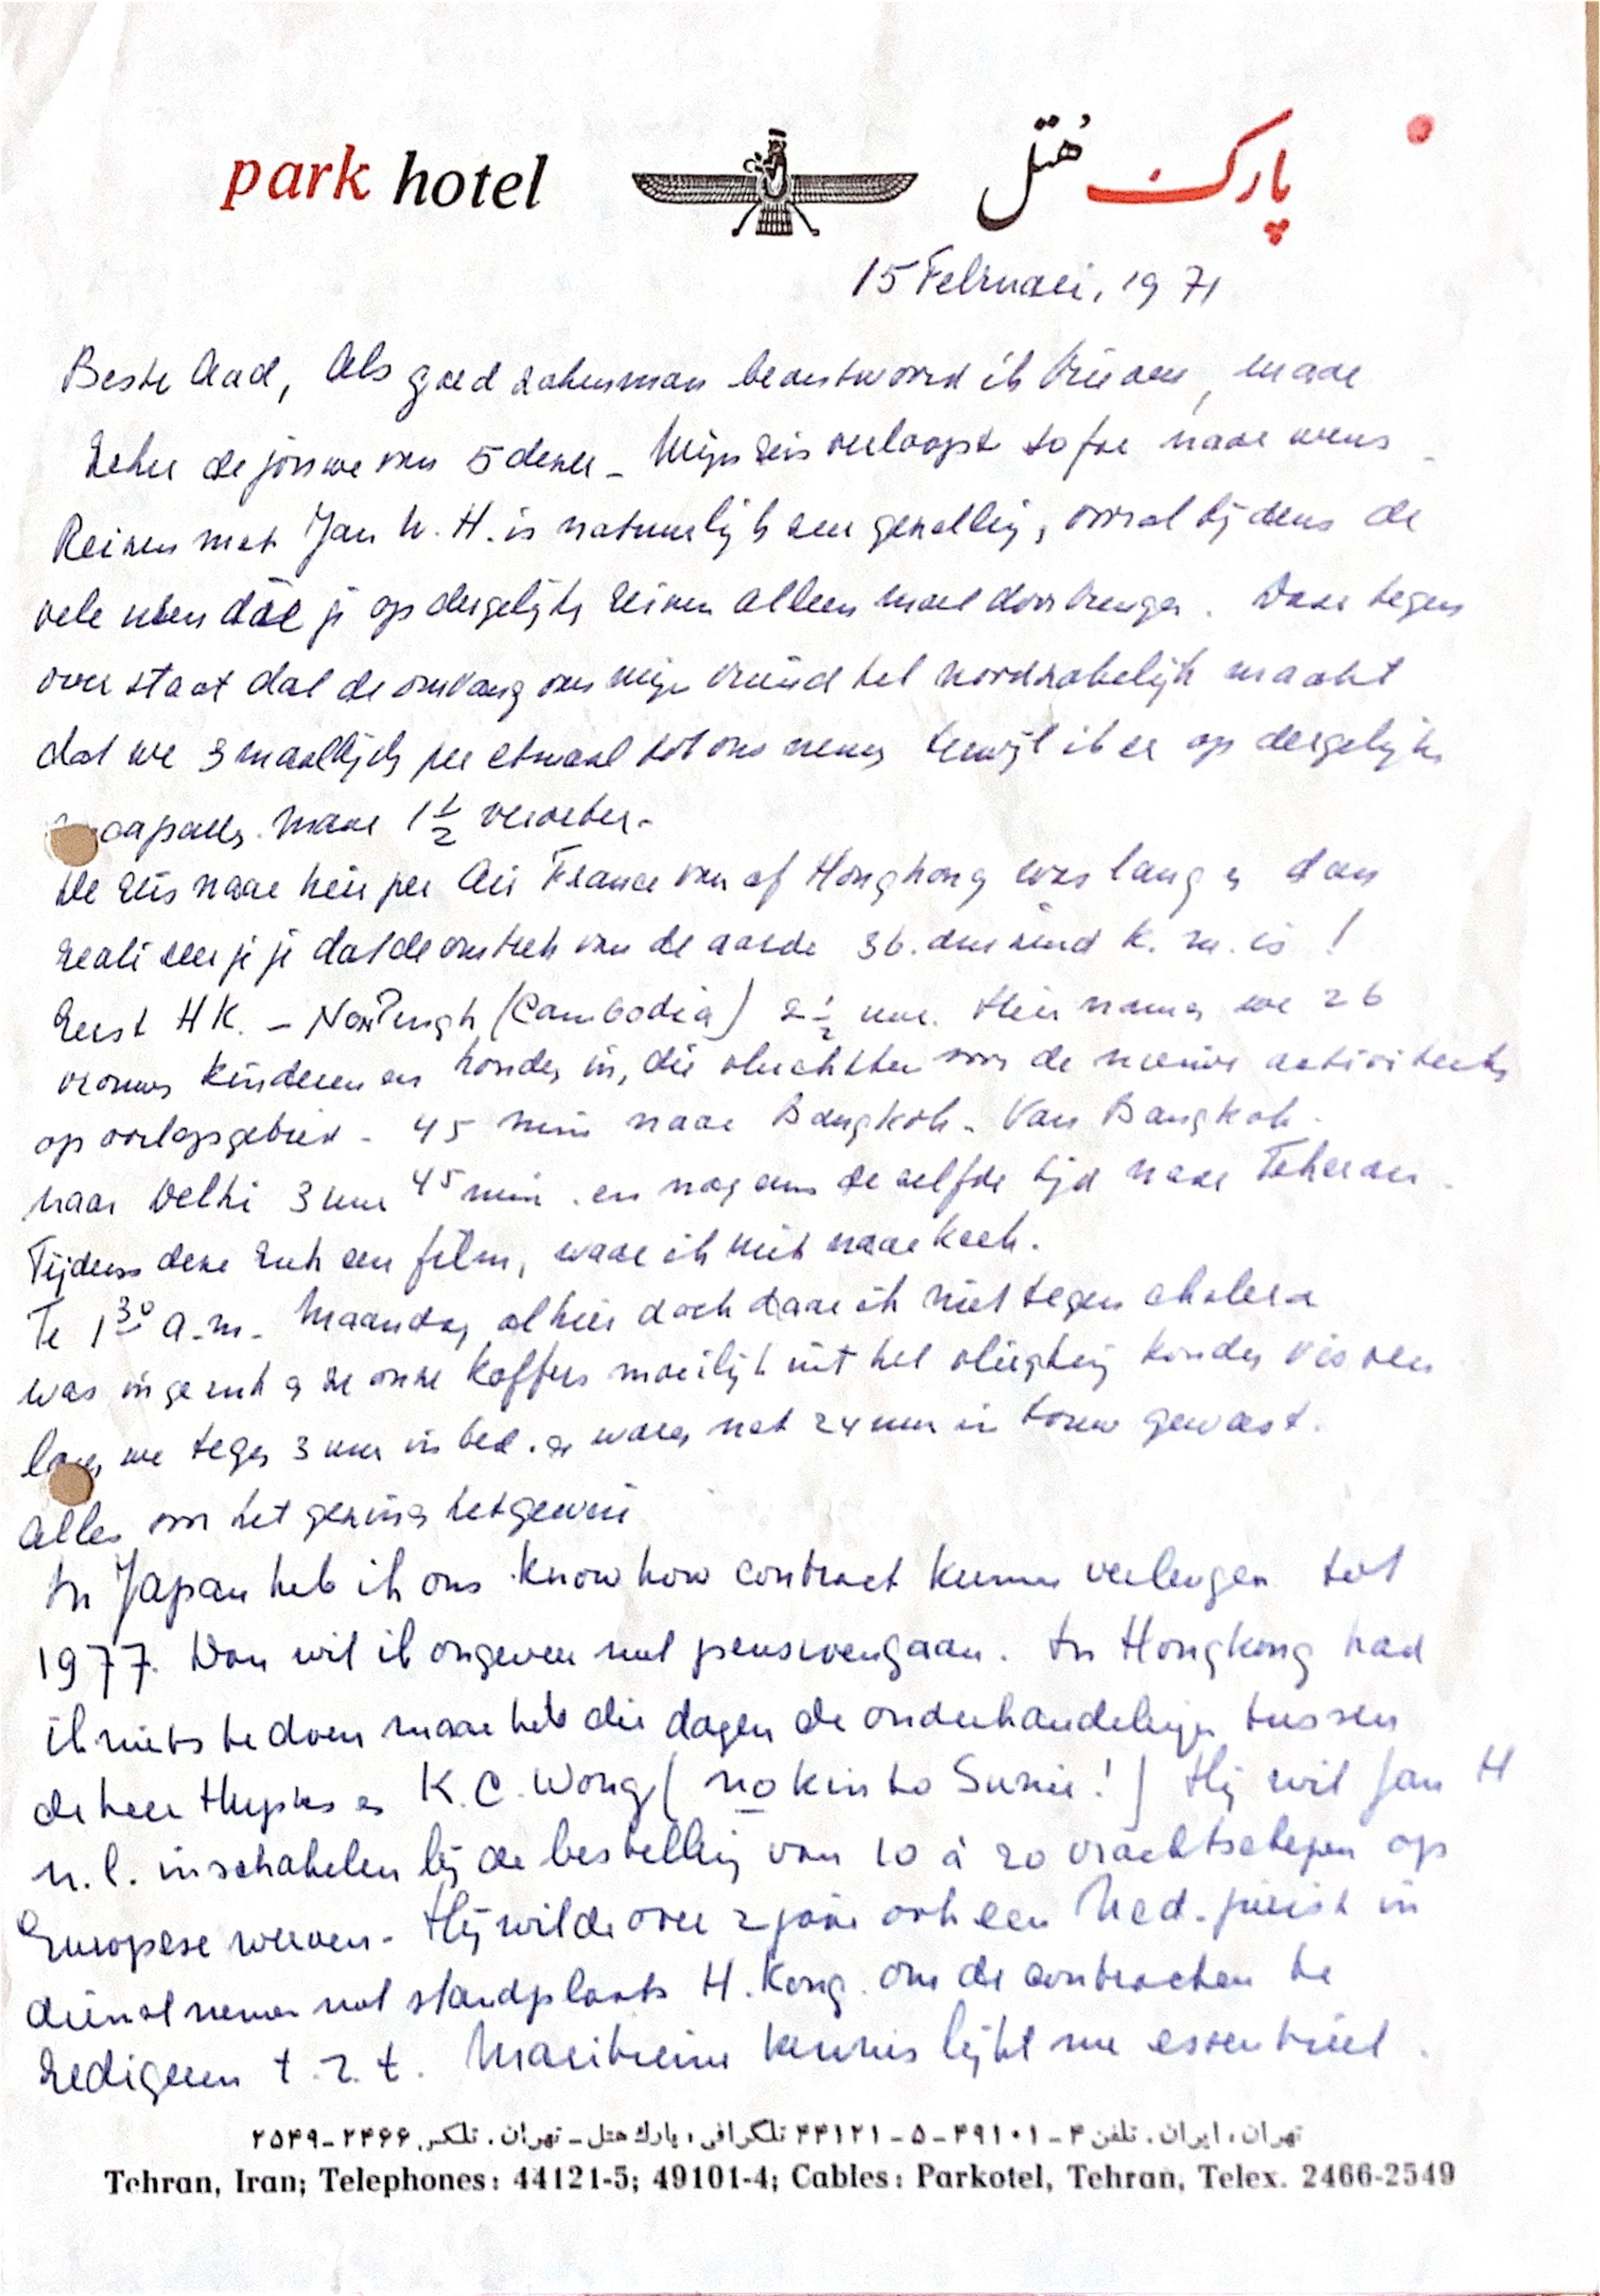 park hotel هتل پارک
15 Februari, 1971
Beste Aad, Als goed zakenman beantwoord ik brieven, maar
zeker de jouwe van 5 dezer - Mijn reis verloopt tofoe naar wens -
Reizen met Jan W. H. is natuurlijk zeer gezellig, vooral tijdens de
vele uren dat je op dergelijke reizen alleen moet doorbrengen. Daar tegen
over staat dat de omvang van mijn vriend het noodzakelijk maakt
dat we 3 maaltijden per etmaal tot ons nemen terwijl ik er op dergelijke
capades maar 1½ verorber -
De reis naar hier per Air France van af Hongkong was lang en dan
realiseer je je dat de omtrek van de aarde 36. duizend k.m. is !
Eerst HK. - Nom Pengh (Cambodia) 2½ uur. Hier namen we 26
vrouwen kinderen en honden in, die vluchtten voor de nieuwe activiteiten
op oorlogsgebied - 45 min naar Bangkok - Van Bangkok -
naar Delhi 3 uur 45 min. en nog eens dezelfde tijd naar Teheran -
Tijdens deze ruk een film, waar ik niet naar keek.
Te 1³⁰ a.m. Maandag alhier doch daar ik niet tegen cholera
was ingeent en ze onze koffers moeilijk uit het vliegtuig konden vissen
lagen we tegen 3 uur in bed. en waren net 24 uur in touw geweest.
alles om het gezin en het gewin
In Japan heb ik ons know how contract kunnen verlengen tot
1977. Dan wil ik ongeveer met pensioen gaan. In Hongkong had
ik niets te doen maar heb die dagen de onderhandelingen tussen
de heer Hupkes en K.C. Wong (no kin to Suzie!) Hij wil Jan H
n.l. inschakelen bij de bestelling van 10 à 20 vrachtschepen op
Europese werven - Hij wilde over 2 jaar ook een Ned. jurist in
dienst nemen met standplaats H. Kong. om de contracten te
redigeren t.z.t. Maritieme kennis lijkt me essentieel.
تهران، ایران. تلفن ۴-۴۹۱۰۱-۵-۴۴۱۲۱ تلگرافی، پارك هتل - تهران. تلکس ۲۴۶۶-۲۵۴۹
Tehran, Iran; Telephones: 44121-5; 49101-4; Cables: Parkotel, Tehran, Telex. 2466-2549